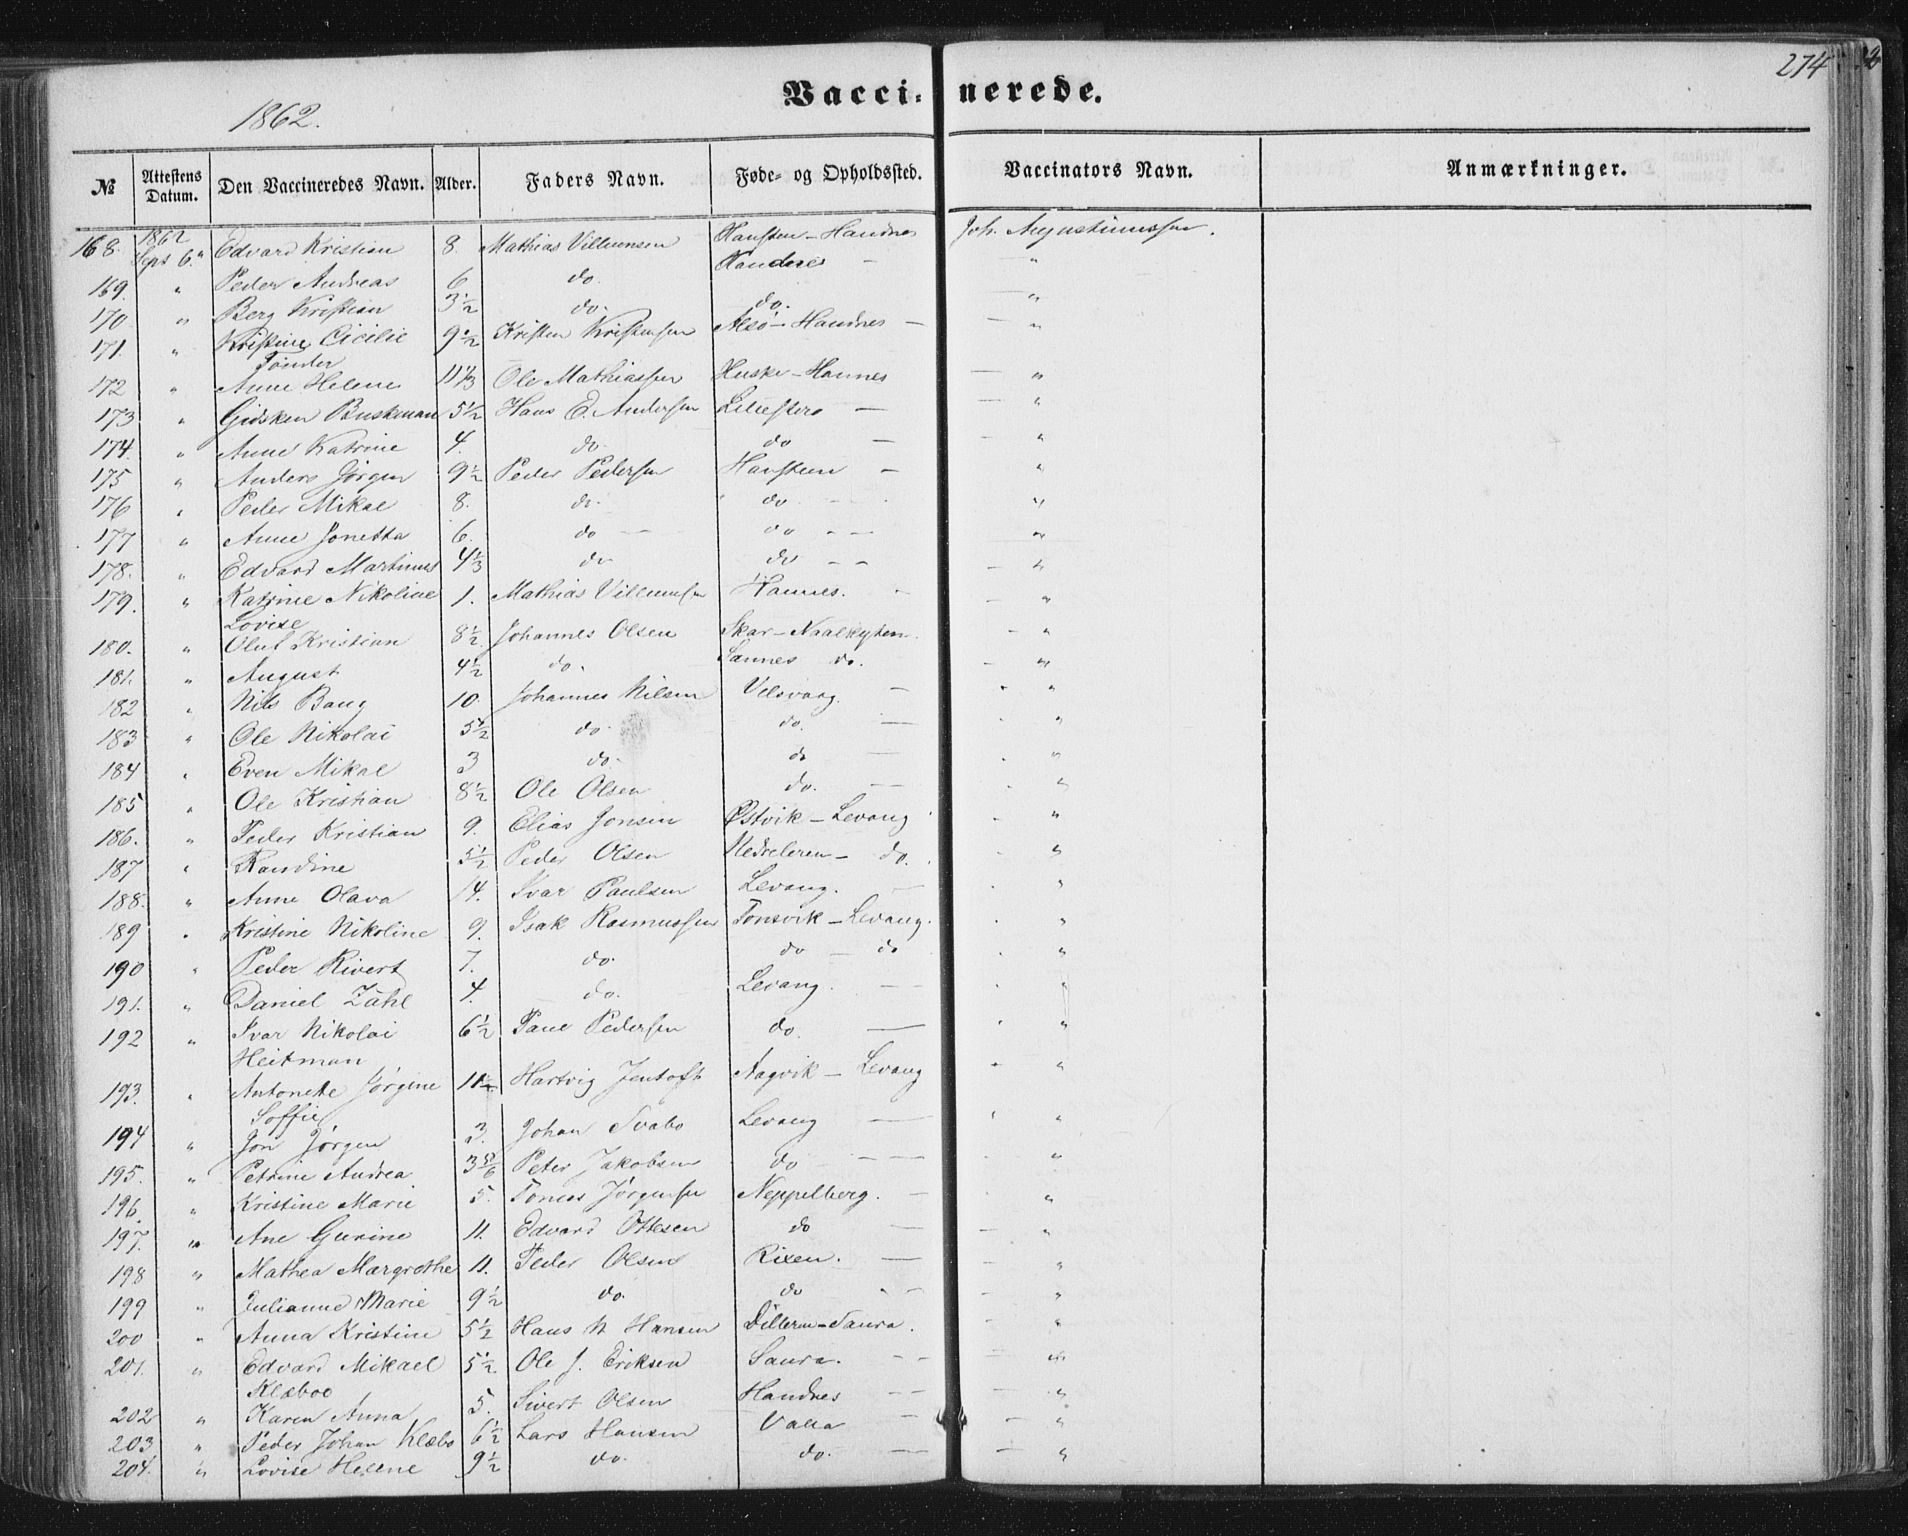 274
1862.
Vacci- nerede.
№ Attestens Datum. Den Vaccineredes Navn. Alder. Faders Navn. Føde- og Opholdssted. Vaccinators Navn. Anmærkninger.
168. 1862 Sept 6. Edvard Kristian 8. Mathias Villumsen Hansten - Handnes Joh. Augustinussen.
169. " Peder Andreas 6 do. Handnes - "
170 " Berg Kristian 3½ do. do. "
171. " Kristine Cicilie 9½ Kristen Kristensen Alsö - Handnes - "
Tønder
172 " Anne Helene 11⅓ Ole Mathiassen Huske - Hannes "
173 " Gidsken Buskman 5½ Hans E. Andersen - "
174. " Anne Katrine 4. do. do - "
175 " Anders Jörgen 9½ Peder Pedersen Hansten - "
176 " Peder Mikal 8. do. do "
177 " Anne Jonetta 6. do do "
178. " Edvard Martinus 4⅓ do do "
179. " Katrine Nikoline 1. Mathias Villumsen Hannes. "
Lovise
180. " Oluf Kristian 8½ Johannes Olsen Skar - "
181. " August 4½ do. Sannes do. "
182 " Nils Bang 10. Johannes Nilsen Velsvaag. - "
183 " Ole Nikolai 5½ do. do. "
184 " Even Mikal 3 do. do "
185 " Ole Kristian 8½ Ole Olsen do. "
186. " Peder Kristian 9. Elias Jonsen Østvik - Levang "
187 " Randine 5½ Peder Olsen - do. "
188. " Anne Olava 14. Ivar Paulsen Levang. "
189 " Kristine Nikoline 9. Isak Rasmussen Tonsvik - Levang. "
190 " Peder Rivert 7. do. do - do "
191. " Daniel Zahl 4. do. Levang. "
192 " Ivar Nikolai 6½ Paul Pedersen do. "
Heitman
193. " Antonette Jørgine 11½ Hartvig Jentoft Aagvik - Levang "
Soffie
194 " Jon Jørgen 3. Johan Svabo Levang "
195. " Petrine Andrea 3⅚ Peter Jakobsen do "
196. " Kristine Marie 5. Tomas Jørgensen Neppelberg. "
197. " Ane Gurine 11. Edvard Ottesen do "
198 " Mathea Margrethe 11. Peder Olsen Rixen. "
199 " Julianne Marie 9½ do. do "
200 " Anna Kristine 5½ Hans N Hansen Dilleren - Saura. "
201. " Edvard Mikael 5½ Ole J. Eriksen Saura. "
Klæboe
202 " Karen Anna 5. Sivert Olsen Handnes "
203 " Peder Johan Klæbo 6½ Lars Hansen Valla "
204. " Lovise Helene 9½ do. do. "